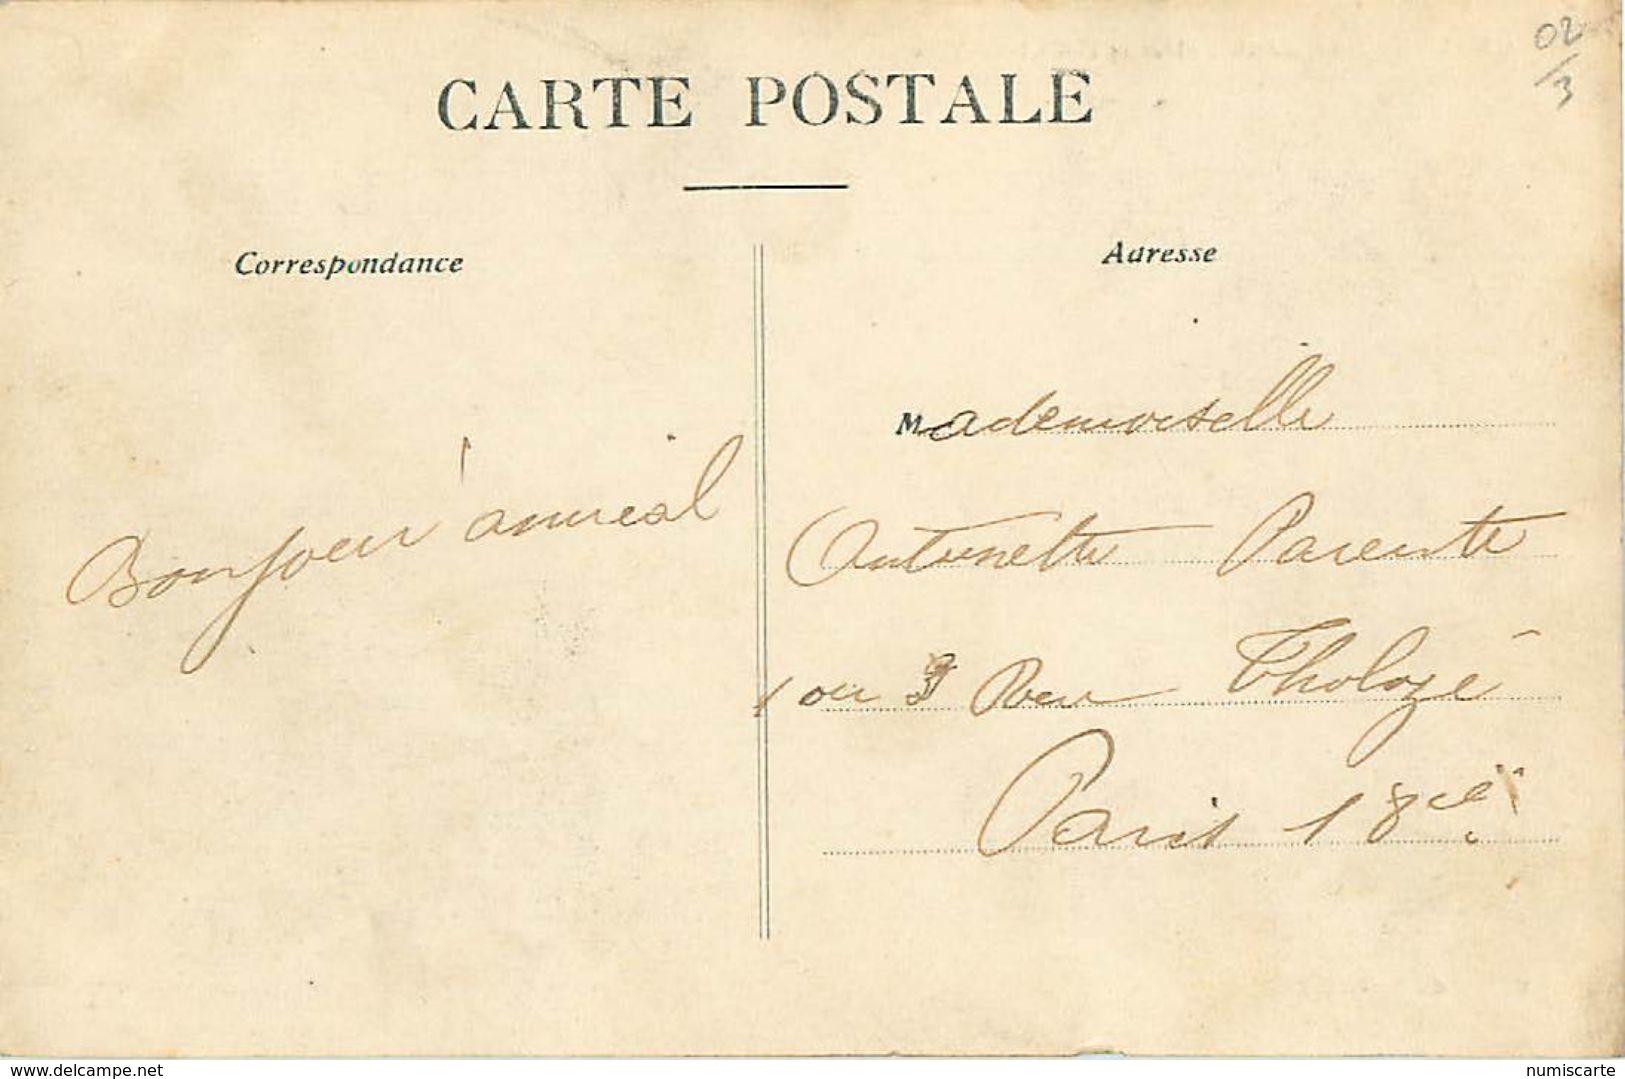 02
/3
CARTE POSTALE
Correspondance
Adresse
Bonjour amical
Mademoiselle
Antoinette Parente
1 ou 3 Rue Tholozé
Paris 18e
www.delcampe.net
numiscarte